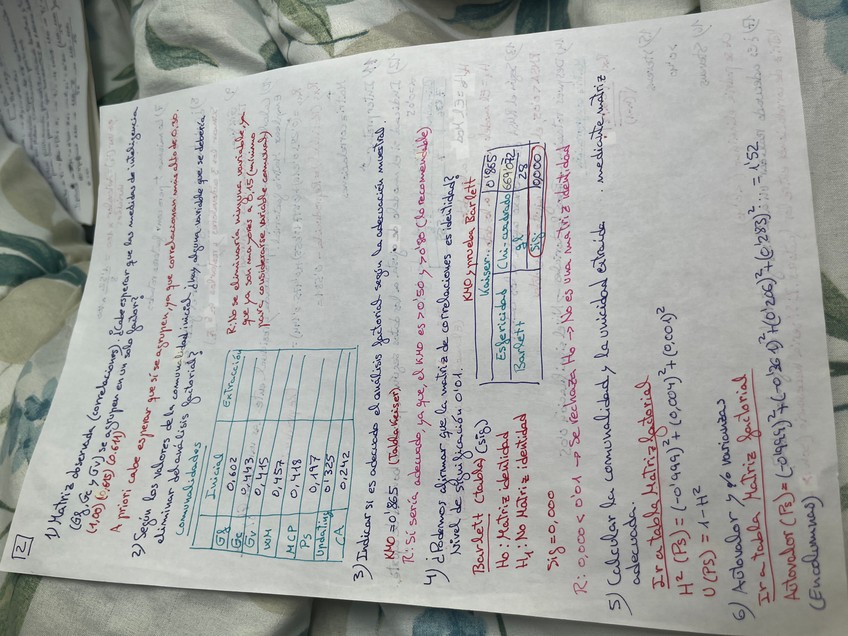 2
1) Matriz observada (correlaciones). ¿Cabe esperar que las medidas de inteligencia
(Gf, Gc y Gv) se agrupen en un solo factor?
(1,00) (0,618) (0,611)
A priori cabe esperar que sí se agrupen, ya que correlacionan más allá de 0,30.
2) Según los valores de la comunalidad inicial, ¿hay alguna variable que se debería
eliminar del análisis factorial?
Comunalidades
Inicial Extracción
Gf 0,602
Gc 0,443
Gv 0,415
WM 0,457
MCP 0,418
Ps 0,197
Updating 0'325
CA 0,242
R: No se eliminaría ninguna variable, ya
que ya son mayores a 0,15 (mínimo
para considerarse variable comunal)
3) Indicar si es adecuado el análisis factorial según la adecuación muestral.
KMO = 0,865 (Tabla Kaiser)
R: Sí sería adecuado, ya que, el KMO es > 0'50 y > 0'80 (lo recomendable)
4) ¿Podemos afirmar que la matriz de correlaciones es identidad?
Nivel de significación 0'01.
Barlett (tabla) (sig)
Ho: Matriz identidad
H1: No Matriz identidad
Sig = 0,000
R: 0,000 < 0'01 → Se rechaza Ho → No es una matriz identidad
KMO y prueba Barlett
Kaiser. 0'865
Esfericidad Chi-cuadrado 669,072
Barlett gl 28
Sig. 0,000
5) Calcular la comunalidad y la unicidad extraída mediante matriz
adecuada.
Ir a tabla Matriz factorial
H² (Ps) = (-0'499)² + (0,004)² + (0,001)²
U (Ps) = 1 - H²
6) Autovalor y % varianzas
Ir a tabla Matriz factorial
Autovalor (Ps) = (-0'499)² + (-0'361)² + (0'206)² + (0'283)² = 1'52
(En columnas)